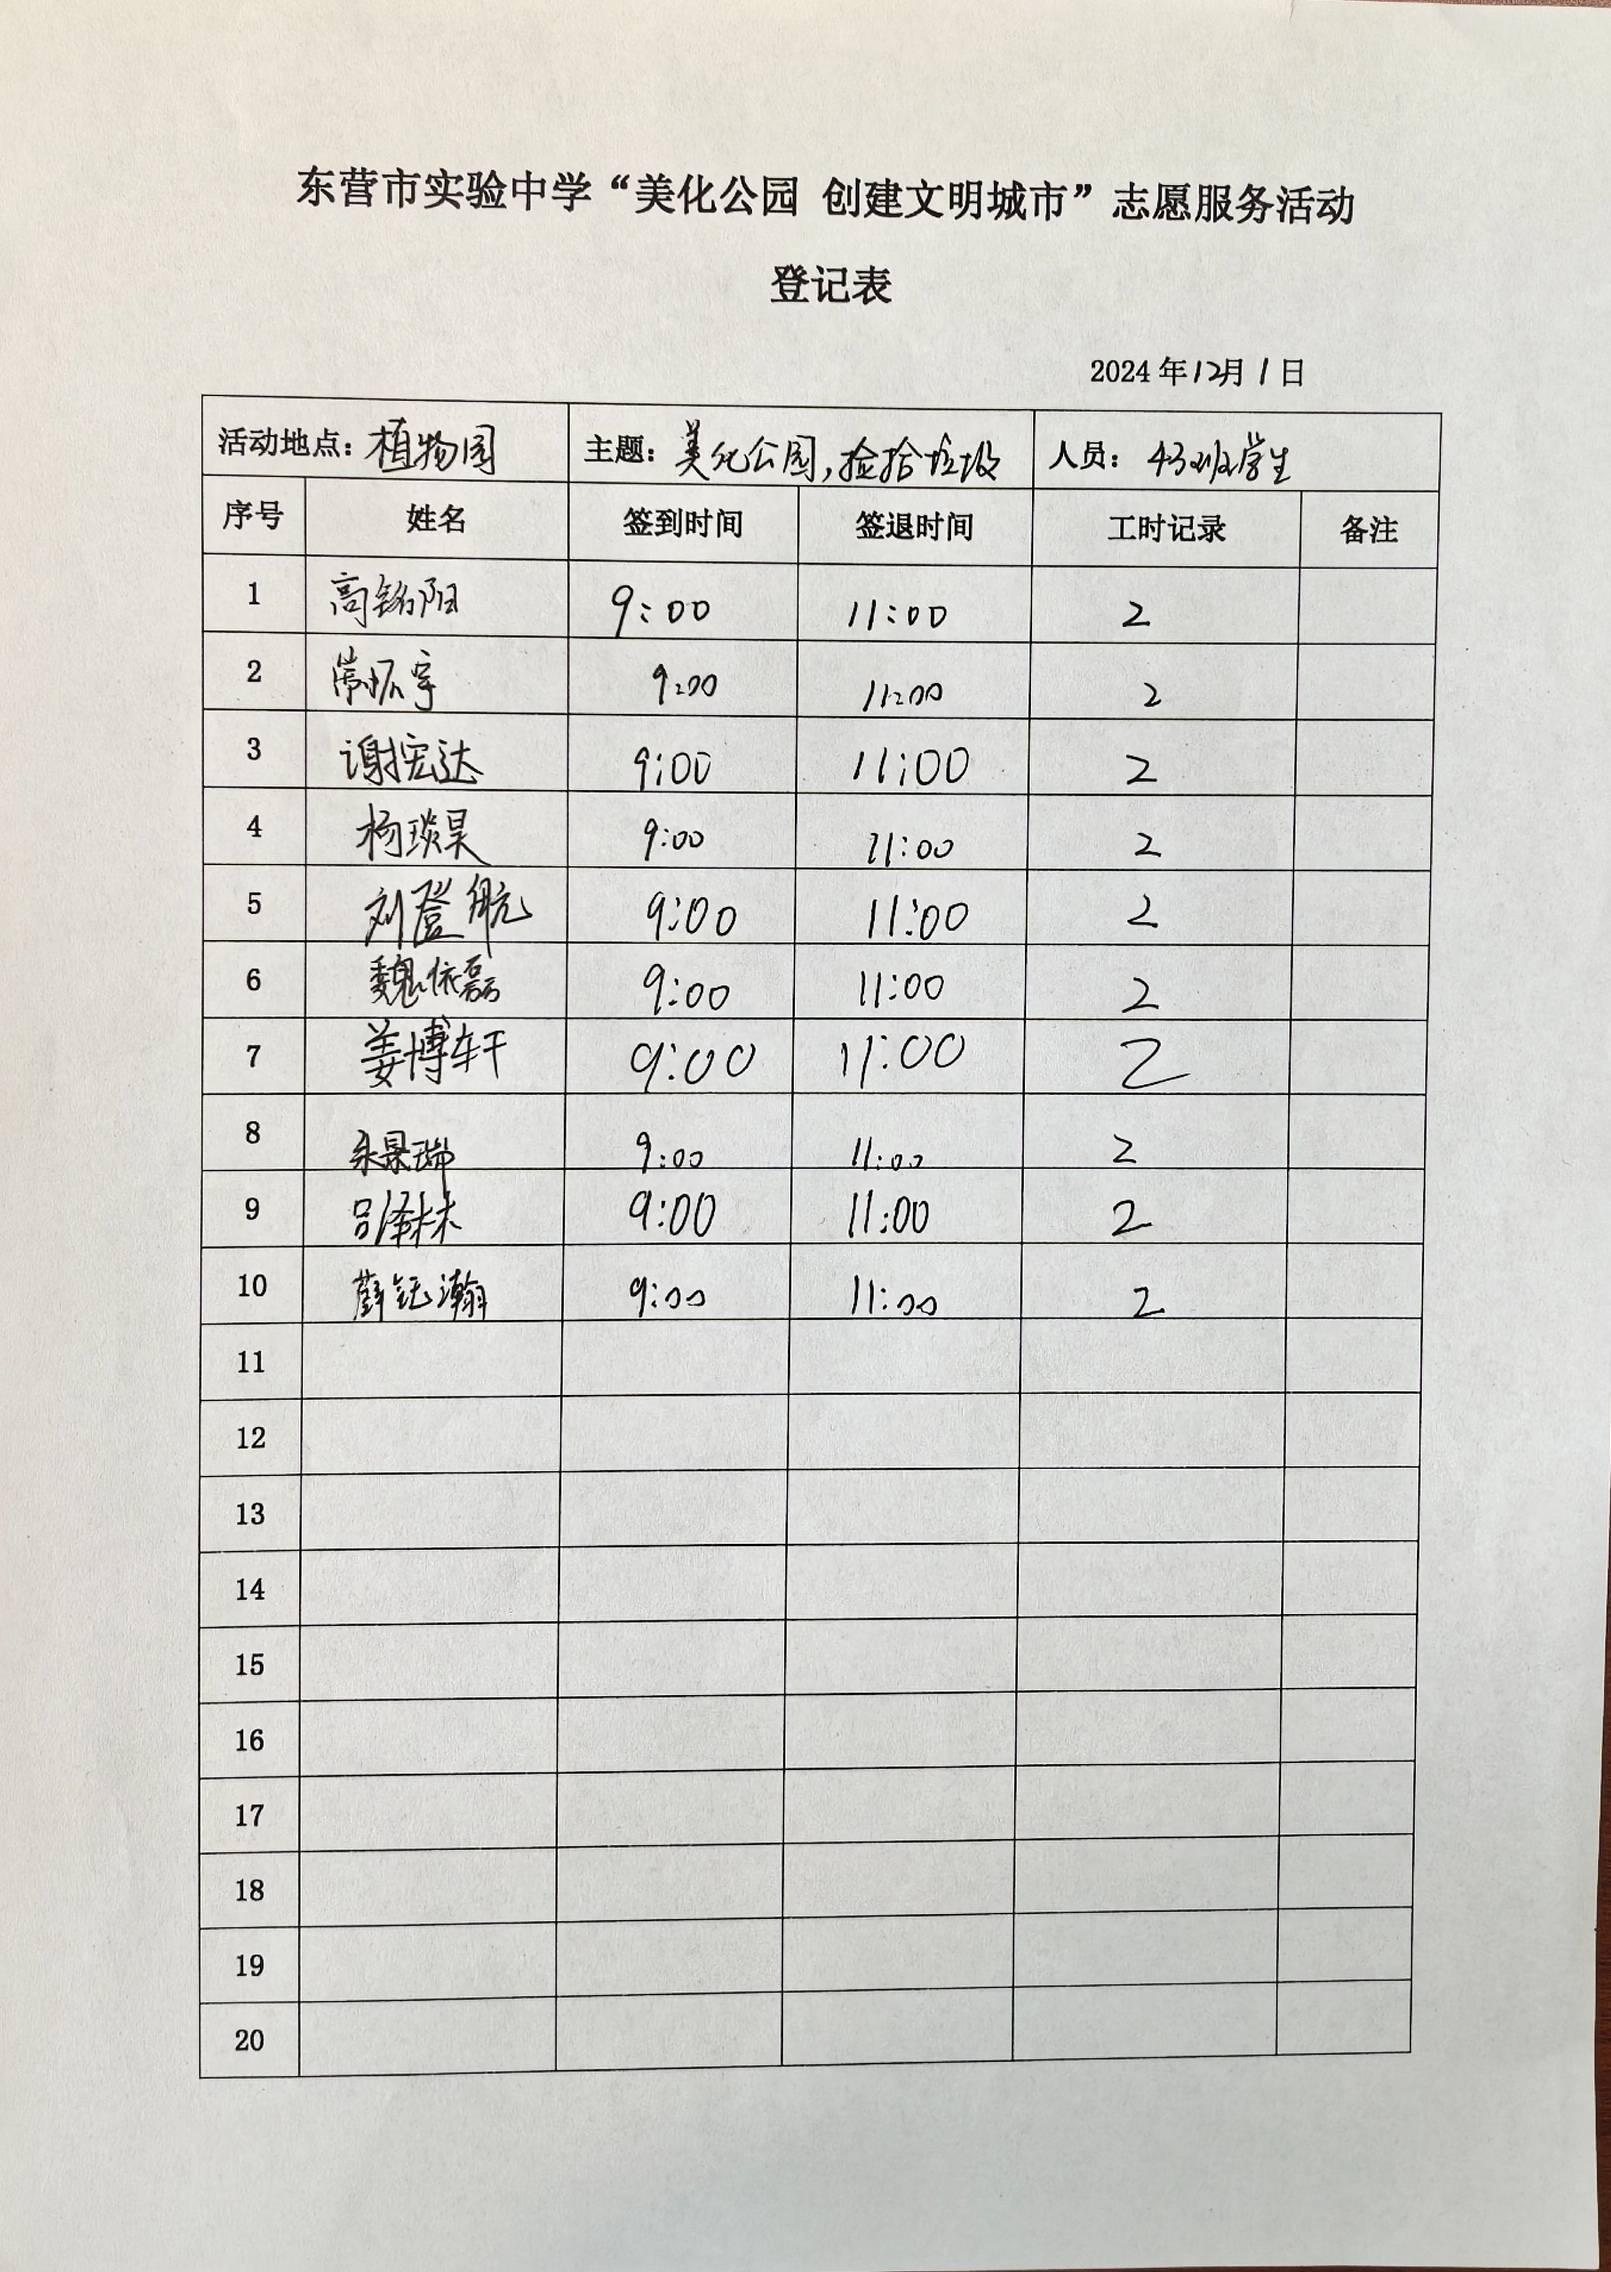 东营市实验中学“美化公园 创建文明城市”志愿服务活动
登记表
2024年12月1日
活动地点：植物园 主题：美化公园，捡拾垃圾 人员：43班学生
序号 姓名 签到时间 签退时间 工时记录 备注
1 高铭阳 9:00 11:00 2
2 宇 9:00 11:00 2
3 谢宏达 9:00 11:00 2
4 杨琰昊 9:00 11:00 2
5 刘登航 9:00 11:00 2
6 魏依磊 9:00 11:00 2
7 姜博轩 9:00 11:00 2
8 景瑞 9:00 11:00 2
9 吕泽林 9:00 11:00 2
10 薛钰瀚 9:00 11:00 2
11
12
13
14
15
16
17
18
19
20